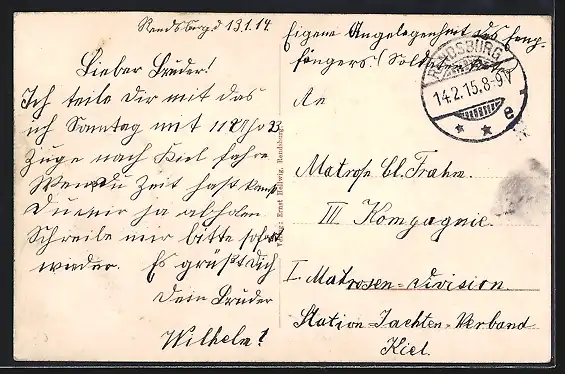 Rendsburg d 13.1.14.
Lieber Bruder!
Ich teile Dir mit das
ich Sonntag mit 11 Uhr 23
Zuge nach Kiel fahre
Wen du Zeit hast kanst
Du mir ja abholen
Schreibe mir bitte sofort
wieder. Es grüßt Dich
Dein Bruder
Wilhelm!
Verlag: Ernst Hellwig, Rendsburg.
Eigene Angelegenheit des Emp-
fängers. (Soldaten
RENDSBURG
14.2.15.8-9V
e
An
Matrose Cl. Frahm.
III Kompagnie.
I. Matrosen-Division.
Station Jachten-Verband
Kiel.